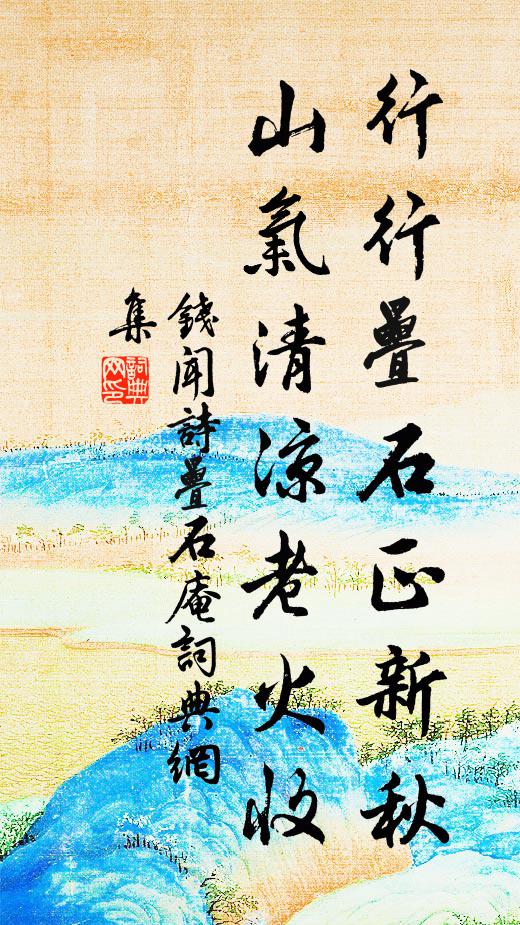 行行疊石正新秋
山氣清涼老火收
錢聞詩疊石庵詞典網
集
詞典網印